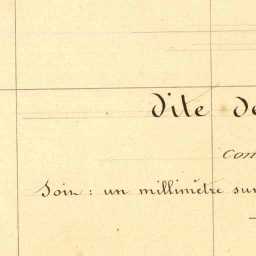 dite de
con
Soit : un millimètre sur